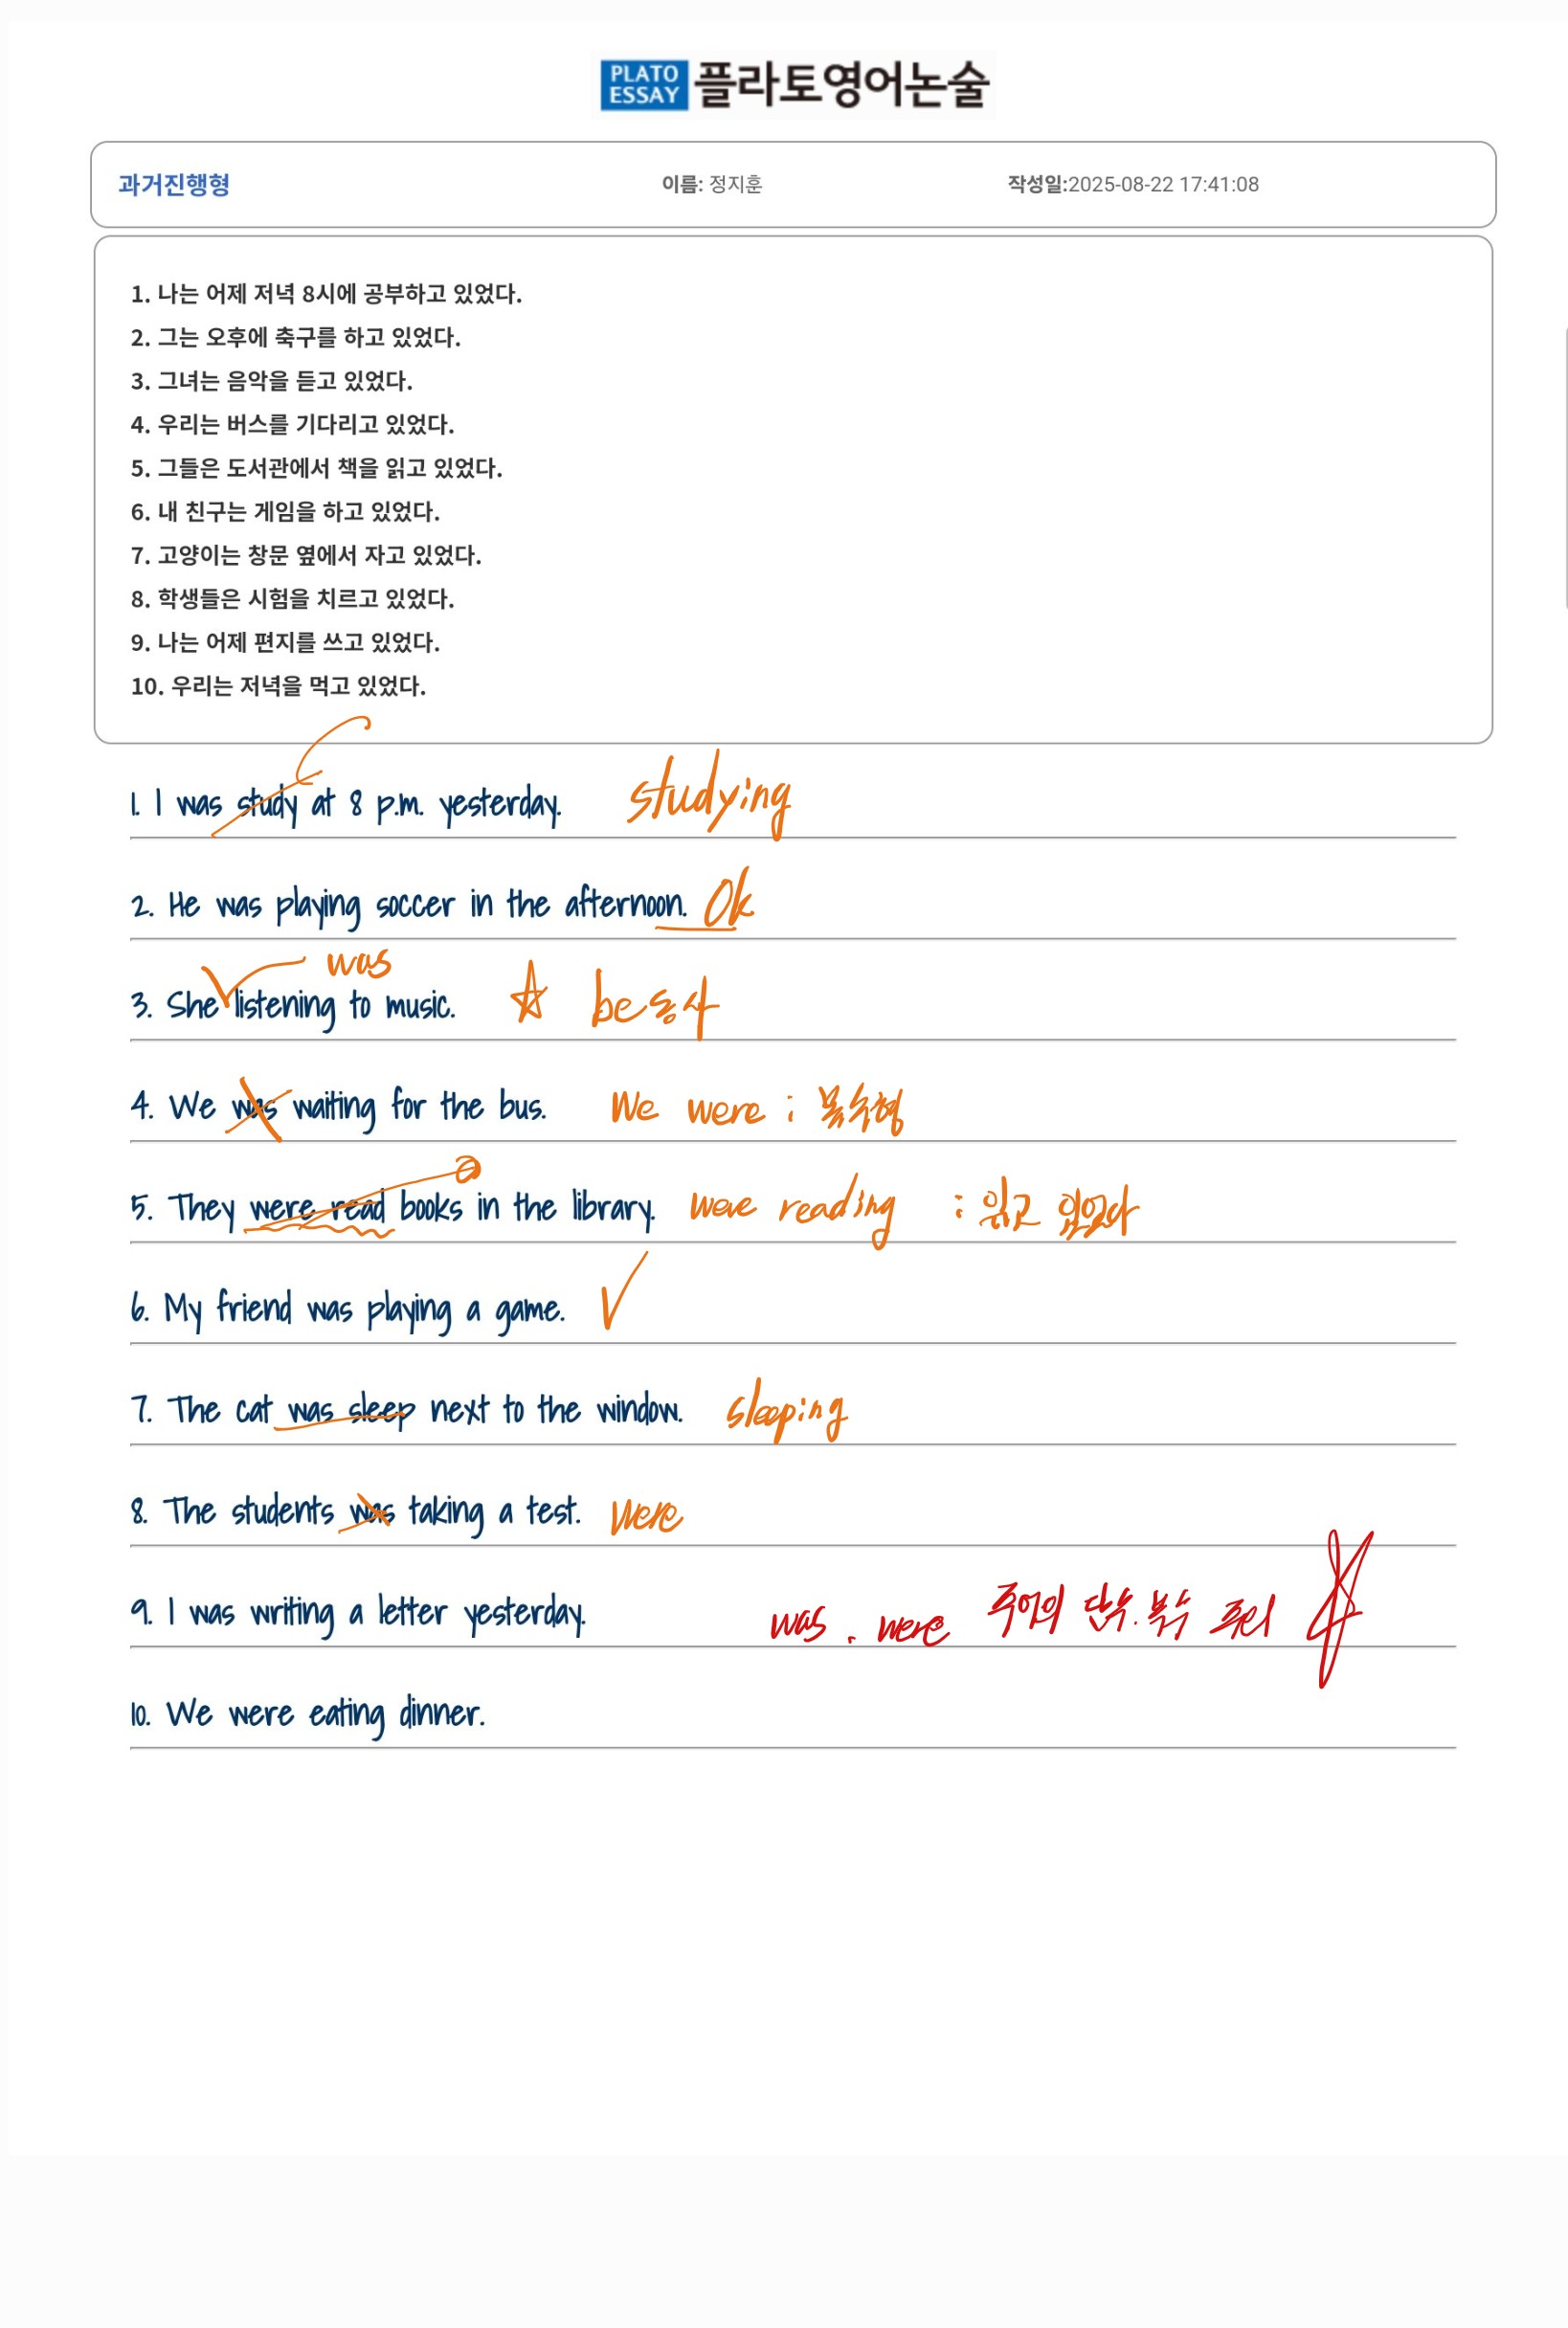 PLATO ESSAY 플라토영어논술
과거진행형 이름: 정지훈 작성일:2025-08-22 17:41:08
1. 나는 어제 저녁 8시에 공부하고 있었다.
2. 그는 오후에 축구를 하고 있었다.
3. 그녀는 음악을 듣고 있었다.
4. 우리는 버스를 기다리고 있었다.
5. 그들은 도서관에서 책을 읽고 있었다.
6. 내 친구는 게임을 하고 있었다.
7. 고양이는 창문 옆에서 자고 있었다.
8. 학생들은 시험을 치르고 있었다.
9. 나는 어제 편지를 쓰고 있었다.
10. 우리는 저녁을 먹고 있었다.
1. I was study at 8 p.m. yesterday. studying
2. He was playing soccer in the afternoon. Ok
was
3. She listening to music. be동사
4. We was waiting for the bus. We were : 복수형
5. They were read books in the library. were reading : 읽고 있었다
6. My friend was playing a game.
7. The cat was sleep next to the window. sleeping
8. The students was taking a test. were
9. I was writing a letter yesterday. was . were 주어의 단수. 복수
10. We were eating dinner.